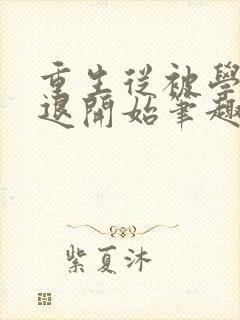 重生從被學
退開始筆趣
紫夏沐